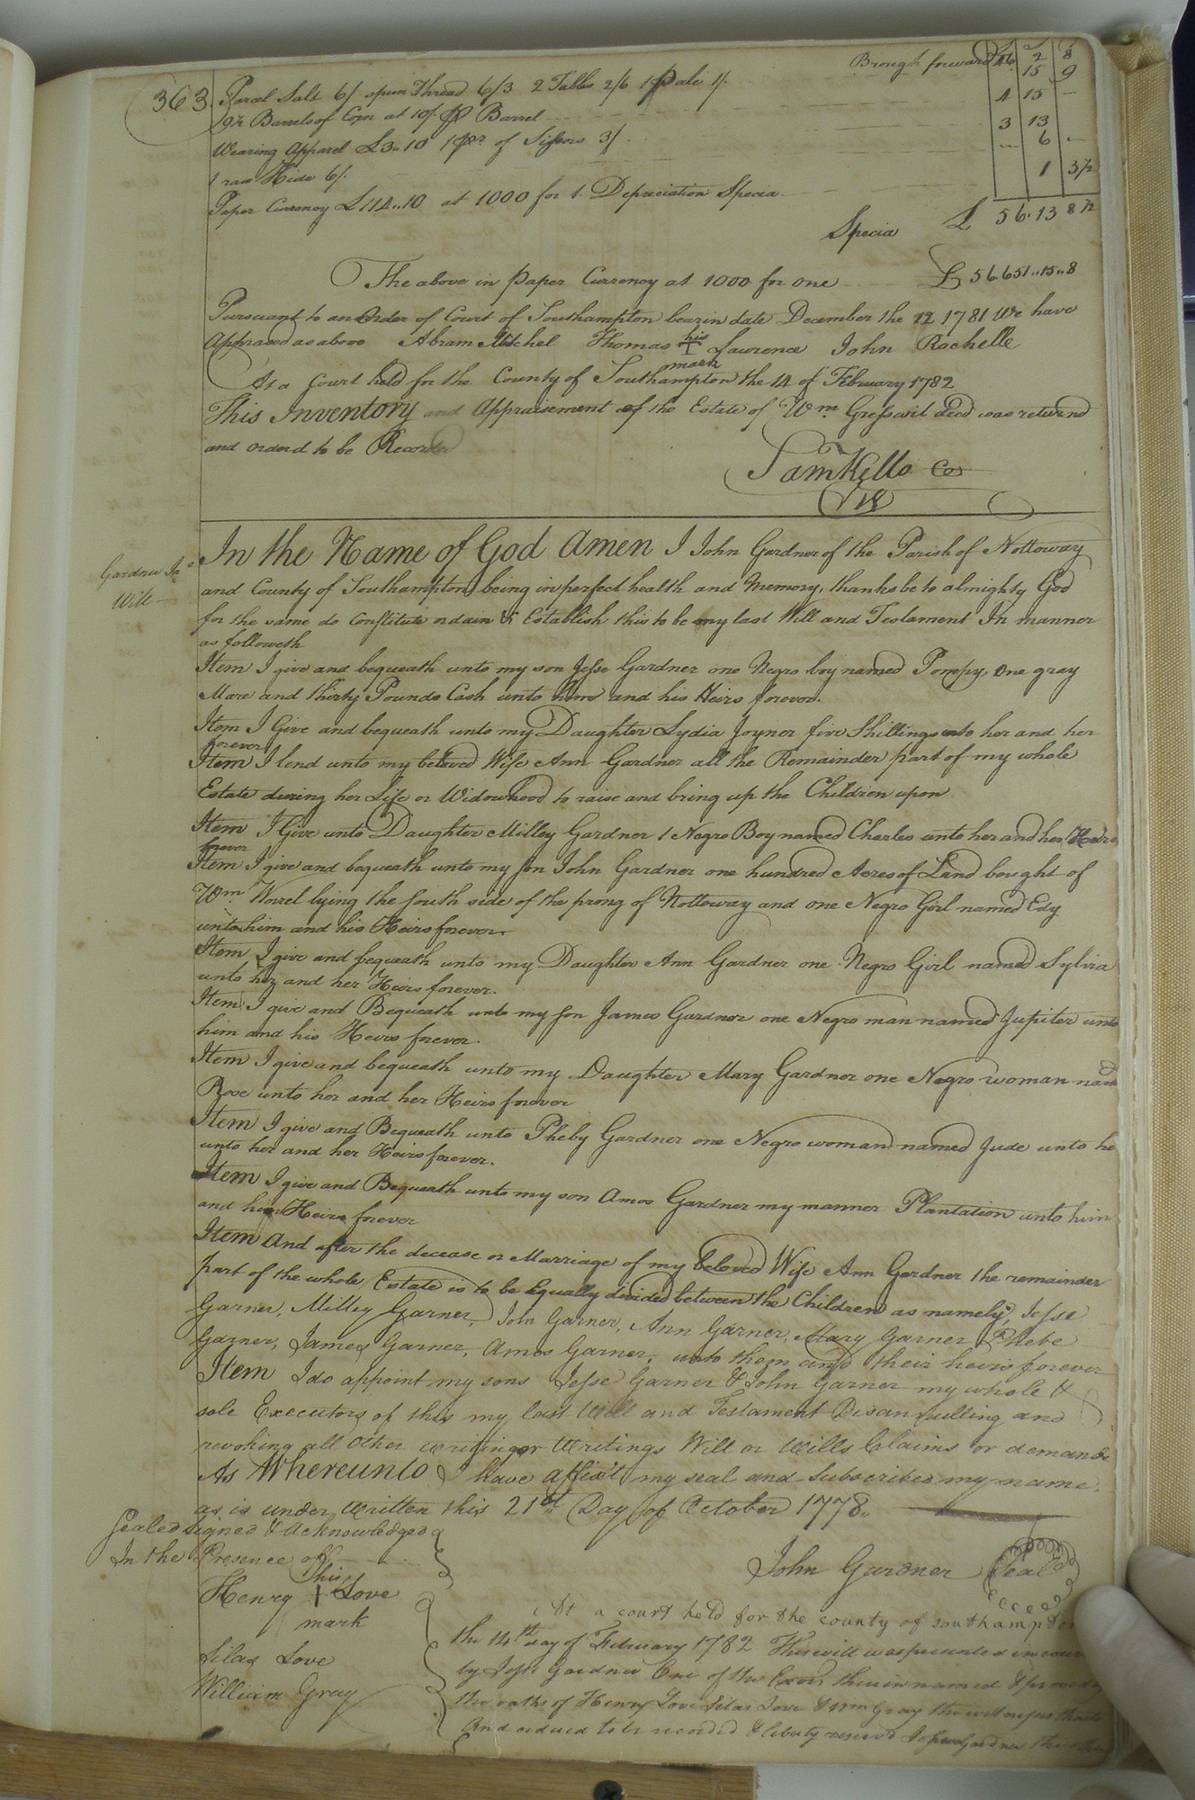 363
Brought forward 46 2 8
Parcel Salt 6/ spun Thread 6/3 2 Tables 2/6 1 Pale 1/. 15 9
9½ Barrels of Corn at 10/ ⅌ Barrel 4 15 —
Wearing Apparel £3..10 1 pr of Sissors 3/. 3 13
1 raw Hide 6/. ... 6 —
Paper Currency £114..10 at 1000 for 1. Depreciation Specia. 1 3½
Specia £ 56.13 8½
The above in paper Currency at 1000 for one £56651..15..8
Pursuant to an Order of Court of Southampton bearin date December the 12 1781 We have
Appraised as above Abram Mitchel Thomas his + mark Lawrence John Rochelle
At a Court held for the County of Southampton the 14 of February 1782
This Inventory and Appraisement of the Estate of Wm. Gresswit decd was returnd
and orderd to be Recorded
Sam Kello Co
Gardner Jn.o
Will
In the Name of God Amen I John Gardner of the Parish of Nottoway
and County of Southampton being in perfect health and Memory, thanks be to almighty God
for the same do Constitute ordain & Establish this to be my last Will and Testament In manner
as followeth
Item I give and bequeath unto my son Jesse Gardner one Negro boy named Pompy, one gray
Mare and thirty Pounds Cash unto him and his Heirs forever.
Item I Give and bequeath unto my Daughter Lydia Joyner five Shillings unto her and her
forever
Item I lend unto my beloved Wife Ann Gardner all the Remainder part of my whole
Estate during her Life or Widowhood to raise and bring up the Children upon
Item I Give unto Daughter Milley Gardner 1 Negro Boy named Charles unto her and her Heirs
forever
Item I give and bequeath unto my son John Gardner one hundred Acres of Land bought of
Wm. lying the south side of the prong of Nottoway and one Negro Girl named Edy
unto him and his Heirs forever.
Item I give and bequeath unto my Daughter Ann Gardner one Negro Girl named Sylvia
unto her and her Heirs forever.
Item I give and Bequeath unto my son James Gardner one Negro man named Jupiter unto
him and his Heirs forever.
Item I give and bequeath unto my Daughter Mary Gardner one Negro woman namd
Rose unto her and her Heirs forever
Item I give and Bequeath unto Pheby Gardner one Negro woman named Jude unto he
unto her and her Heirs forever.
Item I give and Bequeath unto my son Amos Gardner my manner Plantation unto him
and his Heirs forever
Item And after the decease or Marriage of my beloved Wife Ann Gardner the remainder
part of the whole Estate is to be Equally divided between the Children as namely, Jesse
Garner, Milley Garner, John Garner, Ann Garner, Mary Garner Phebe
Garner, James Garner, Amos Garner, unto them and their heirs forever
Item I do appoint my sons Jesse Garner & John Garner my whole &
sole Executors of this my last Will and Testament Disannulling and
revoking all other writing or Writings Will or Wills Claims or demands
As Whereunto I have affixt my seal and Subscribed my name
as is under written this 21st Day of October 1778
Sealed signed & Acknowledged
In the Presence off
Henry his + mark Love
Silas Love
William Gray
John Gardner Seal
At a court held for the county of southampton
the 14th day of February 1782 This will was presented in court
by Jesse Gardner One of the Exors therein named & proved by
the oaths of Henry Love Silas Love & Wm Gray the witnesses thereto
And ordered to be recorded & liberty reserved